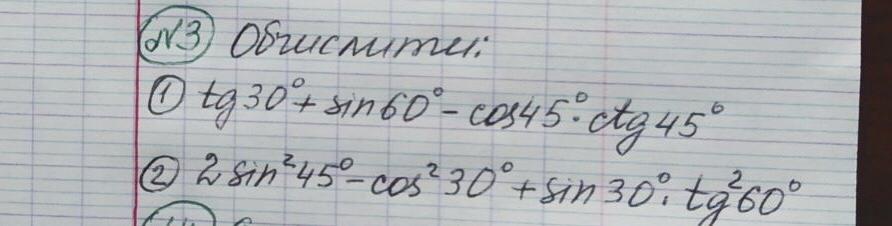 №3 Обчислити:
① tg30°+ sin60°- cos45°·ctg45°
② 2sin²45°-cos²30°+sin30°·tg²60°